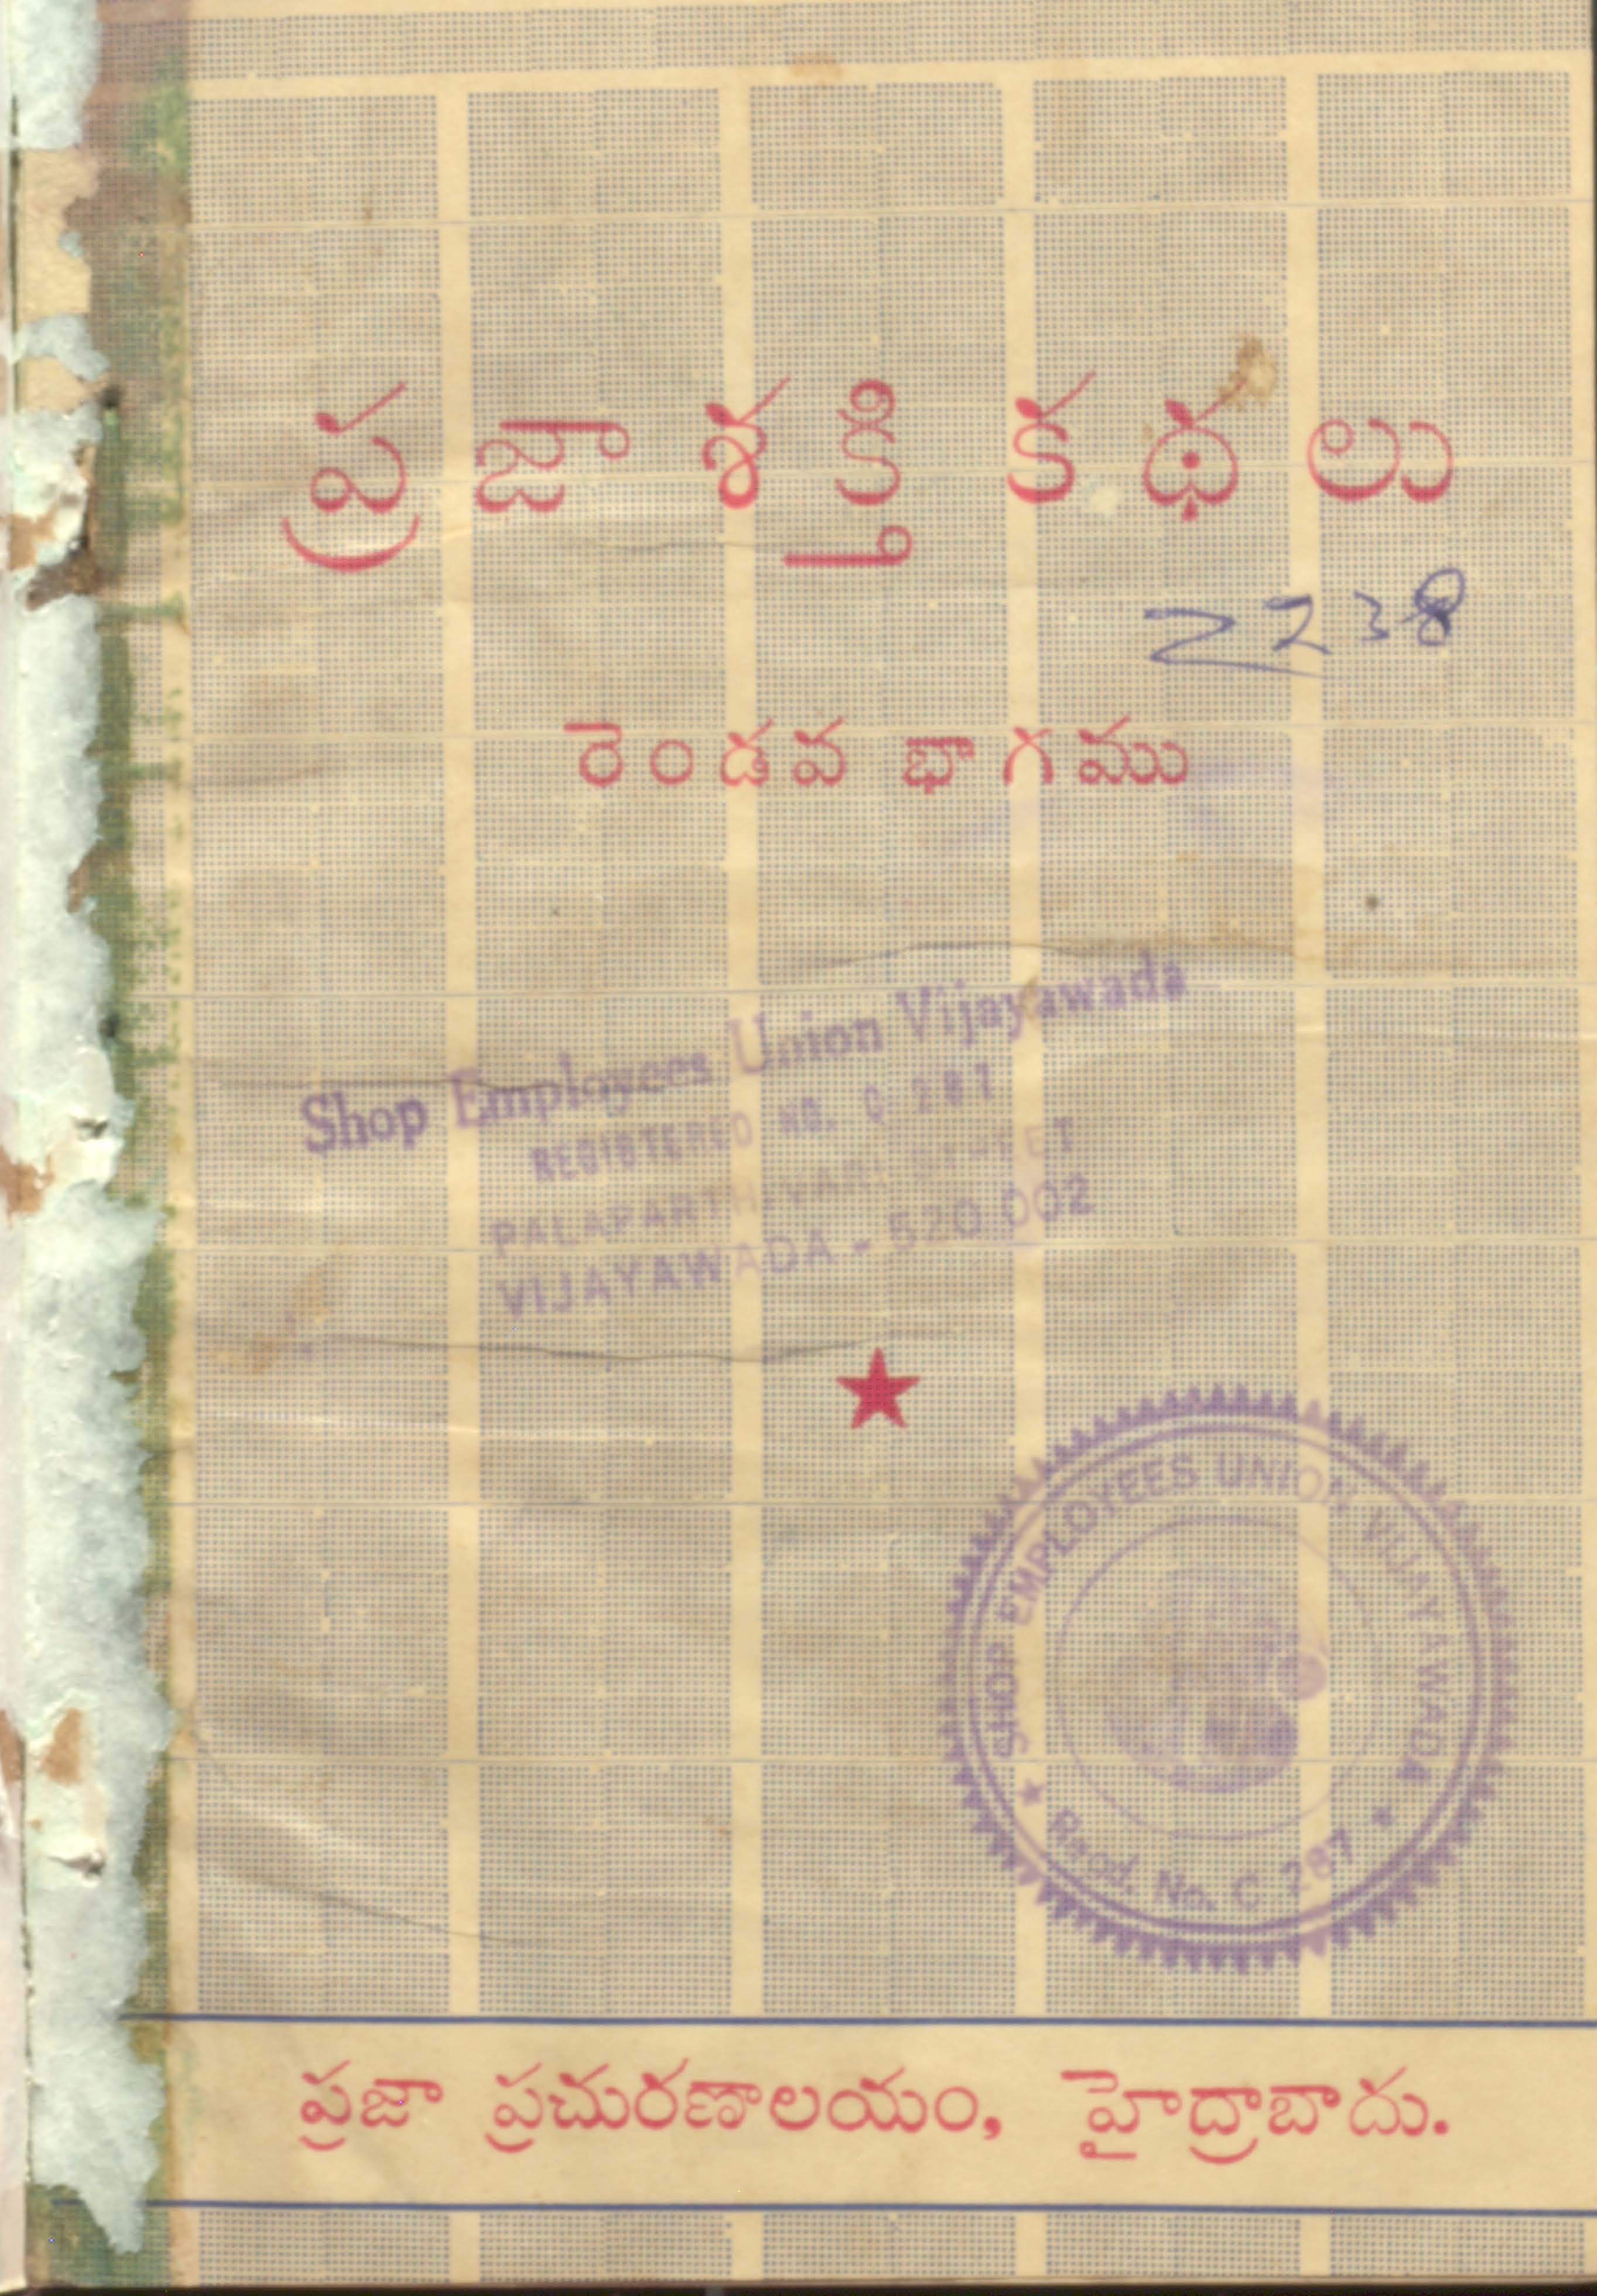 ప్రజాశక్తి కథలు
2238
రెండవ భాగము
Shop Employees Union Vijayawada
REGISTERED NO. C 287
PALAPARTHIVARI STREET
VIJAYAWADA - 520 002
★
SHOP EMPLOYEES UNION VIJAYAWADA
★ Regd. No. C 287 ★
ప్రజా ప్రచురణాలయం, హైద్రాబాదు.